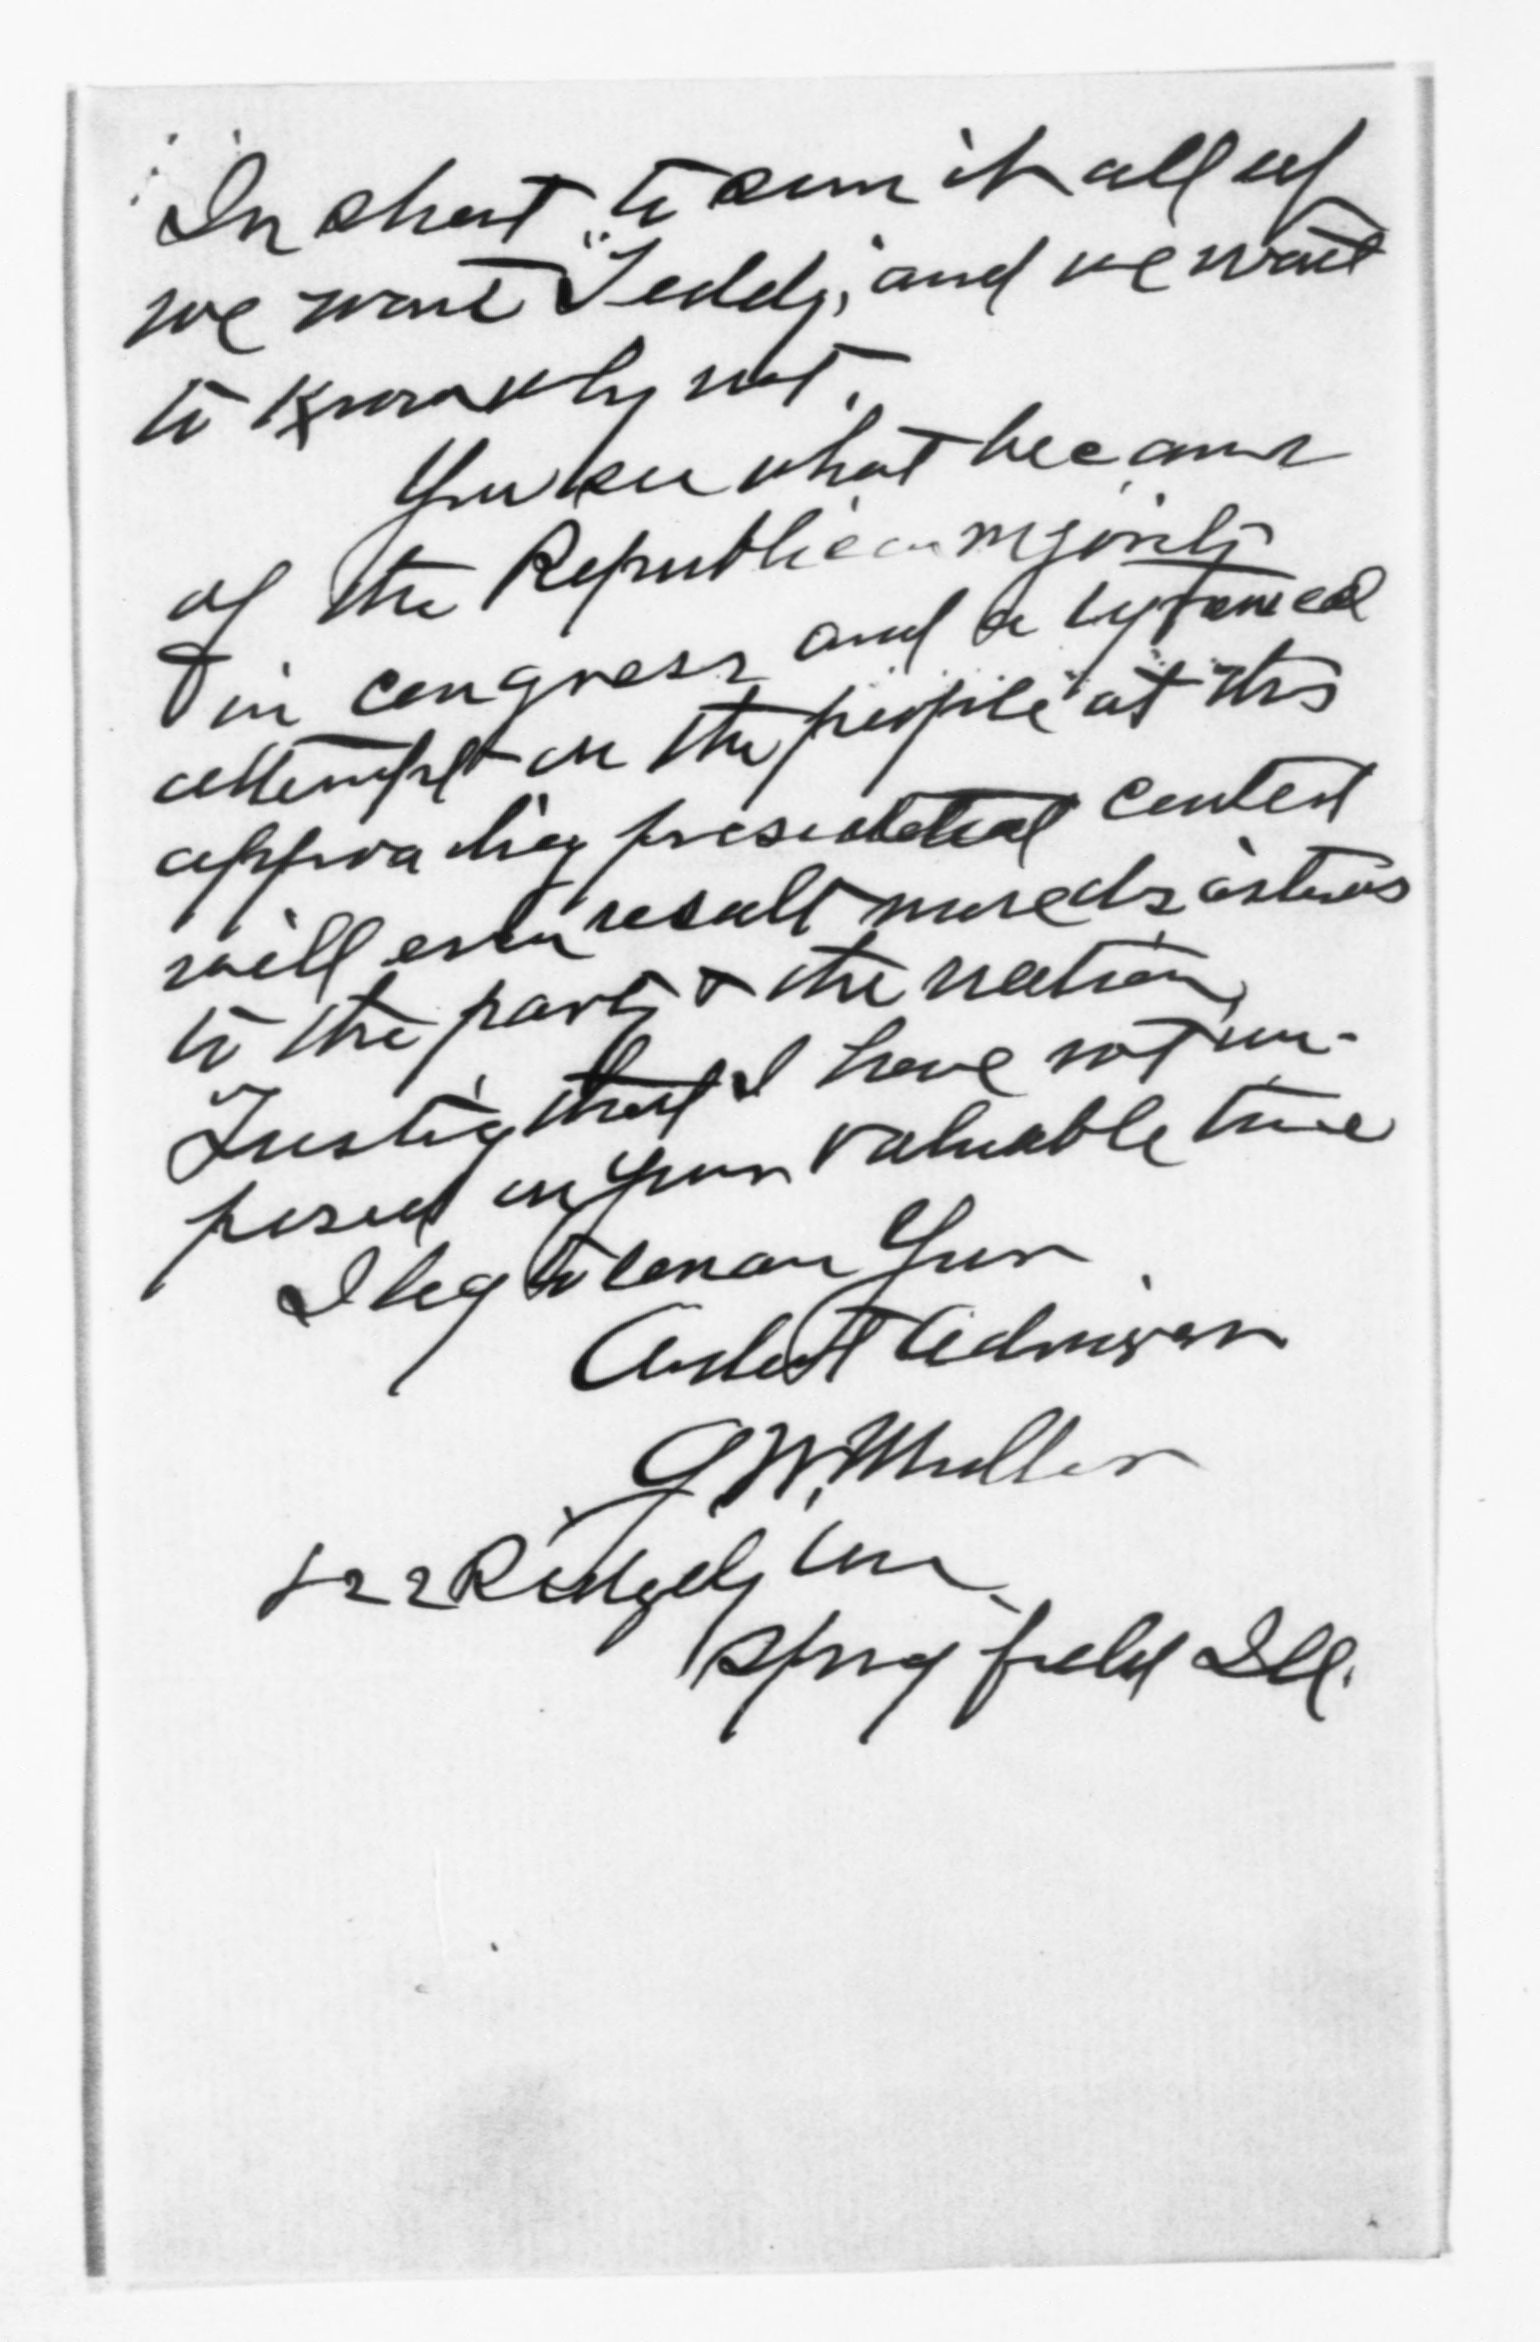 In short to sum it all up
we want "Teddy," and we want
to know why not.
You see what became
of the Republican mjority
in congress and a tyranical
attempt on the people at this
approaching presidential contest
will even result more disastrous
to the party & the nation,
Trusting that I have not im-
posed on your valuable time
I beg to remain Your
Ardent Admirer
G W. Muller
Ridgely Ave
Springfield Ill.